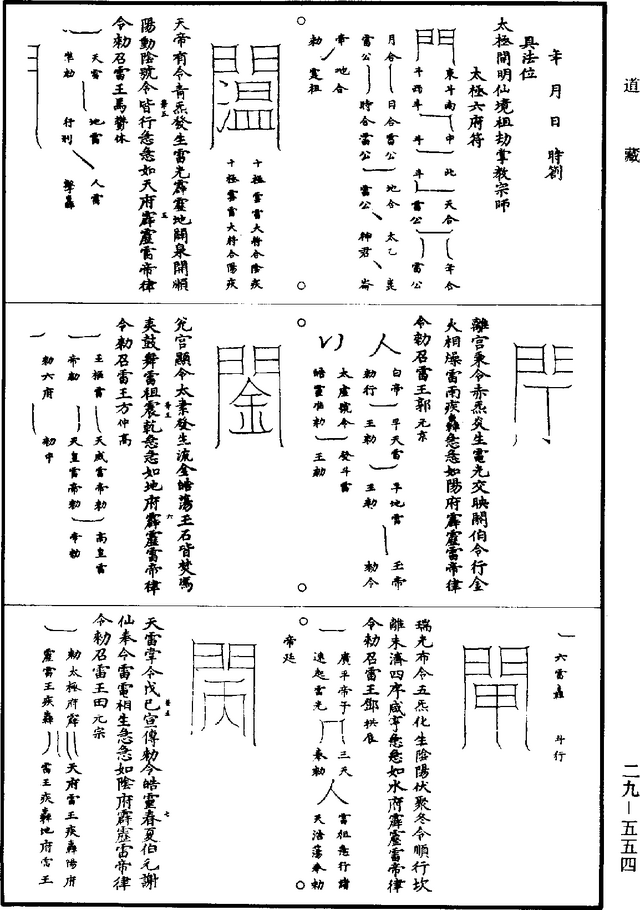 道藏
年月日時劄
具法位
太極開明仙境祖劫掌教宗師
太極六府符
東斗南 中 北 天合 年合
斗西斗 斗 斗 雷公 雷公
月合 日合雷公 地合 太乙
雷公 時合雷公 雷公 神君
帝 地合
勅 雷祖
十極雷霆大將合陰疾
十極雲雷大將合陽疾
天帝有令青炁發生雷光霹靂地關泉開順
陽動陰號令皆行急急如天府霹靂雷帝律
令勅召雷王馬鬱林
天雷 地雷 人雷
準勅 行刑 擊轟
離宮秉令赤炁炎生電光交映關伯令行金
火相燥雷雨疾轟急急如陽府霹靂雷帝律
令勅召雷王郭元京
白帝 旱天雷 旱地雷 玉帝
勅行 王勅 王勅 勅令
太虛號令 發斗雷
皓靈准勅 王勅
兌宮顯令太素發生流金皓蕩玉石皆焚馮
夷鼓舞雷祖震乾急急如地府霹靂雷帝律
令勅召雷王方仲高
王樞雷 天威雷帝勅 高皇雷
帝勅 天皇雷帝勅 帝勅
勅六府 勅中
六雷轟 斗行
瑞光布令五炁化生陰陽伏聚冬令順行坎
離未濟四序咸亨急急如水府霹靂雷帝律
令勅召雷王鄧拱辰
廣平帝子 三天 雷祖急行諸
速起雷光 奉勅 天浩蕩奉勅
帝廷
天雷掌令戊己宣傳勅令皓靈春夏伯元謝
仙奉令雷雷相生急急如陰府霹靂雷帝律
令勅召雷王田元宗
勅太極府霹 天府雷王疾轟陽府
靂雷王疾轟 雷王疾轟地府雷王
二九—五五四